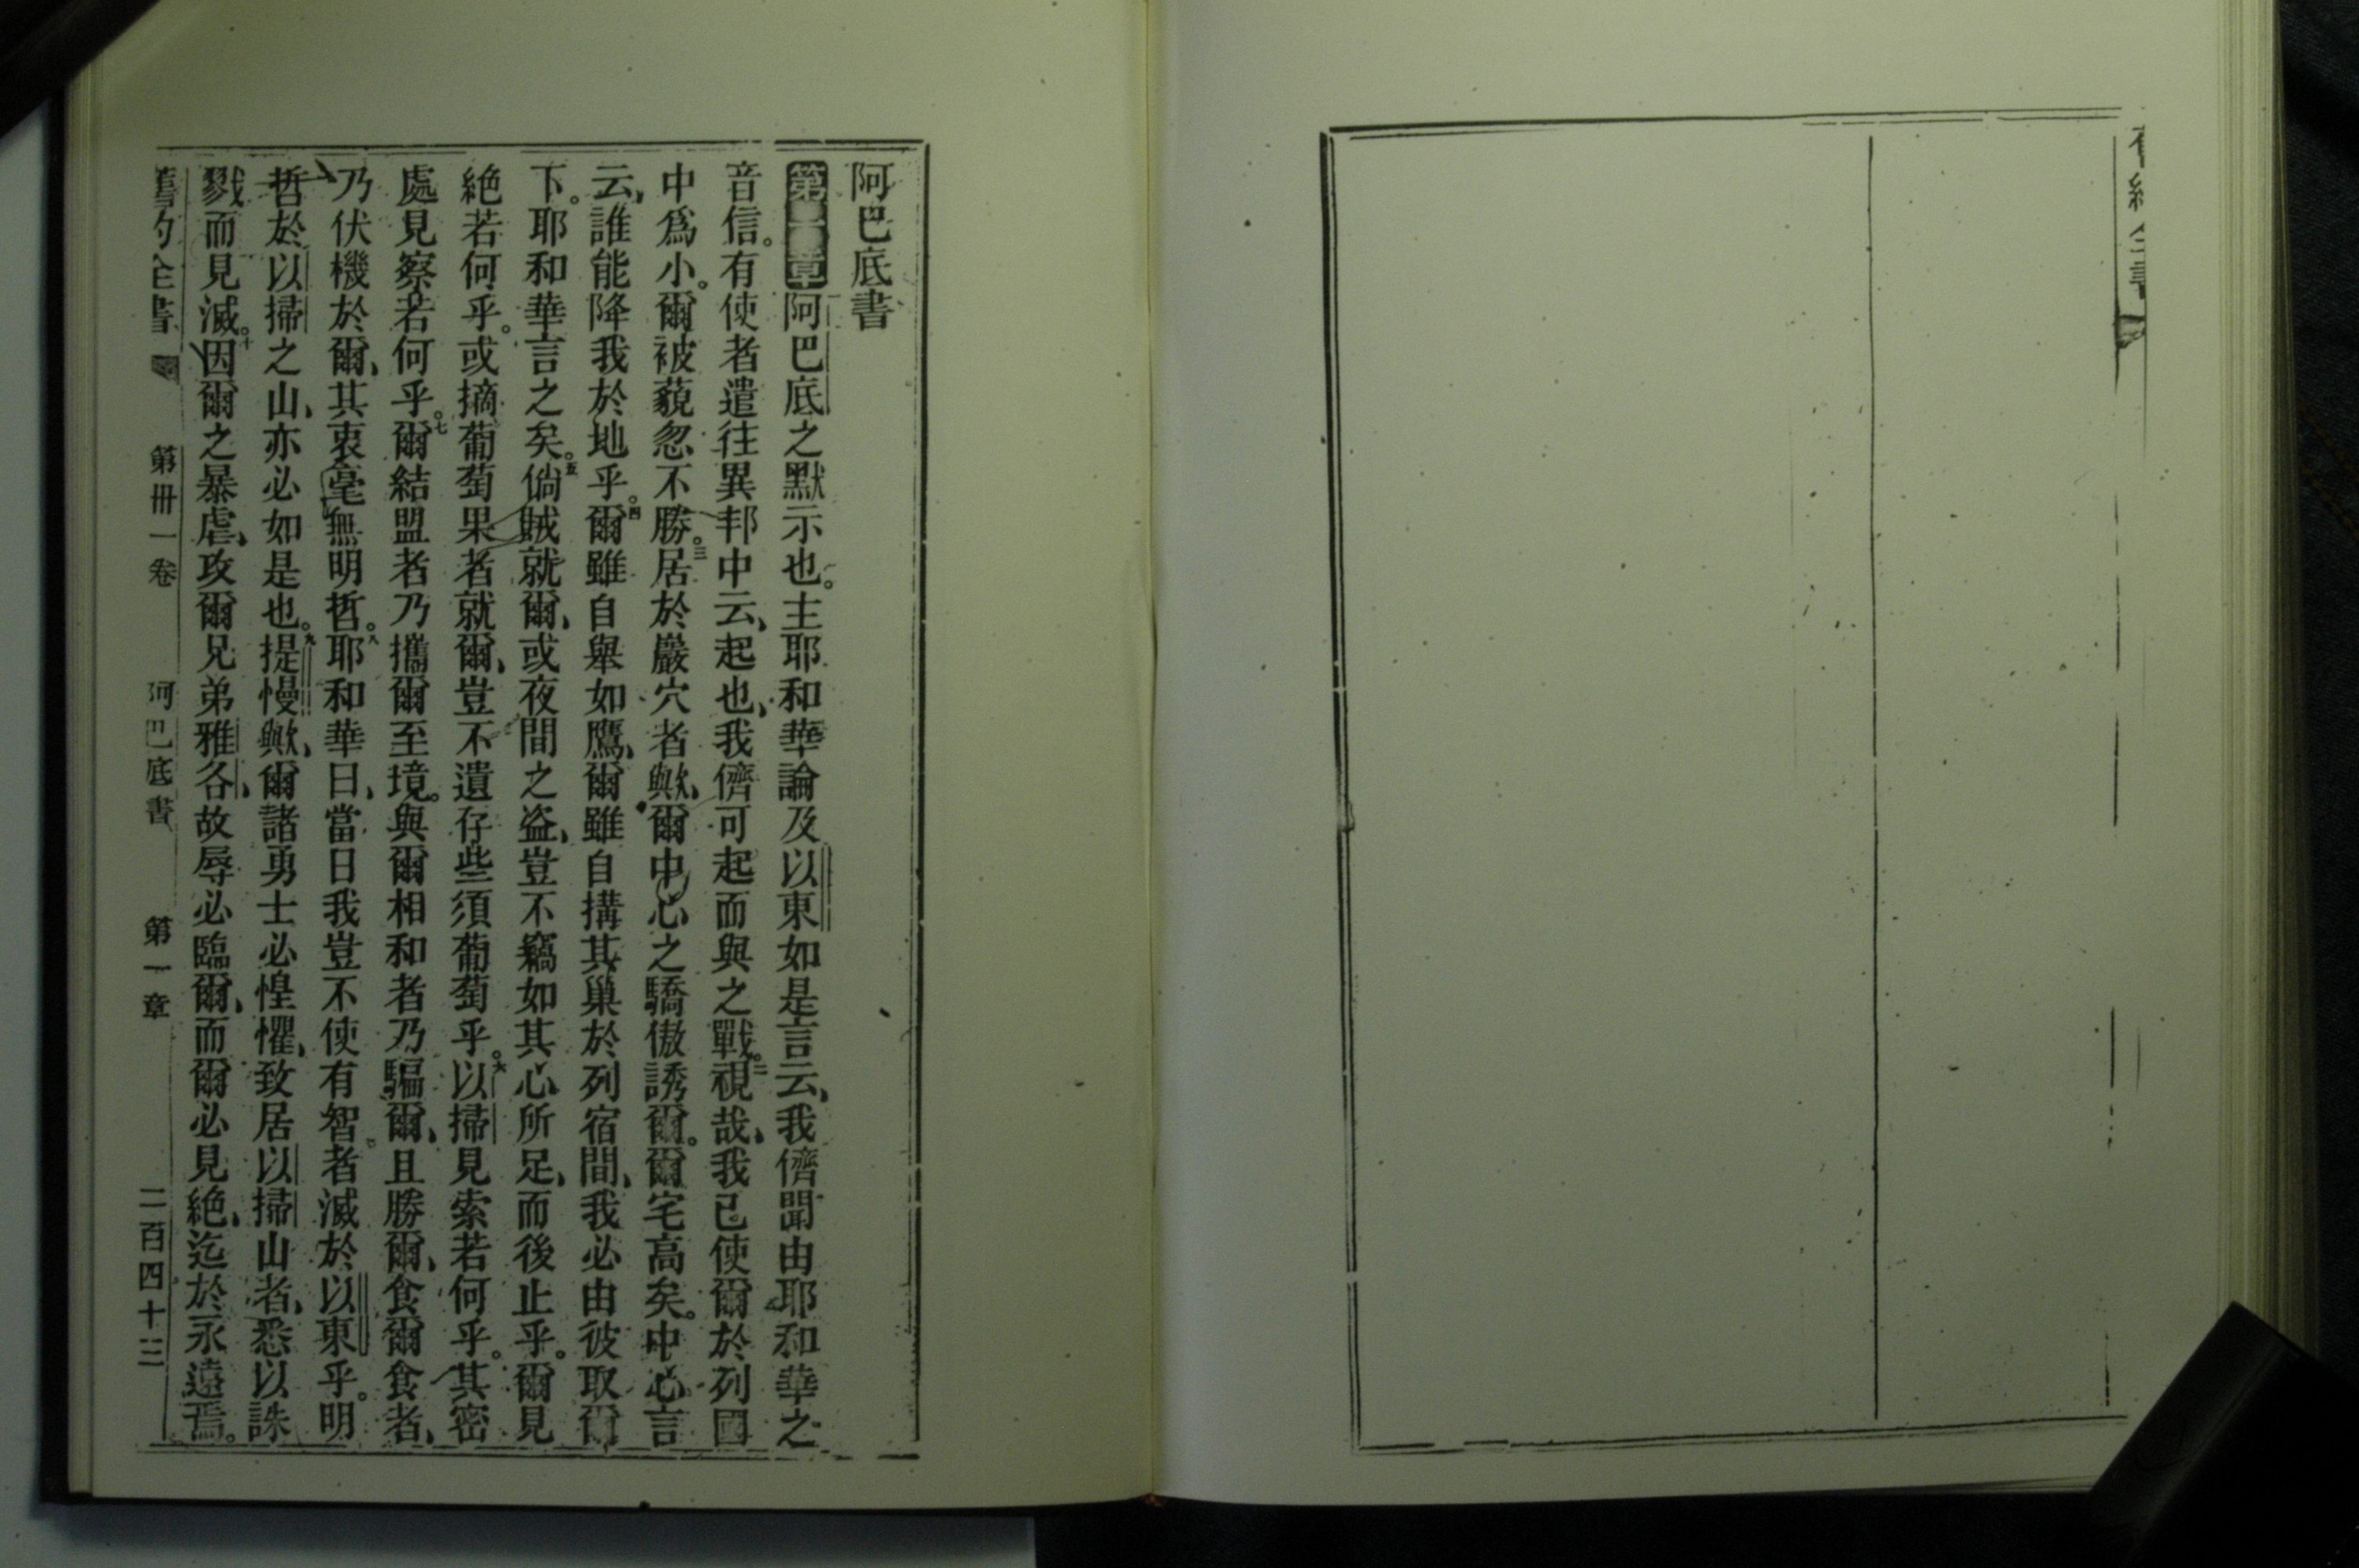 阿巴底書
第一章阿巴底之默示也。主耶和華論及以東如是言云、我儕聞由耶和華之
音信。有使者遣往異邦中云、起也、我儕可起而與之戰。二視哉、我已使爾於列國
中爲小。爾被藐忽不勝。三居於巖穴者歟、爾中心之驕傲誘爾。爾宅高矣。中心言
云、誰能降我於地乎。四爾雖自舉如鷹、爾雖自搆其巢於列宿間、我必由彼取爾
下。耶和華言之矣。五倘賊就爾、或夜間之盜、豈不竊如其心所足、而後止乎。爾見
絕若何乎。或摘葡萄果者就爾、豈不遺存些須葡萄乎。六以掃見索若何乎。其密
處見察若何乎。七爾結盟者乃攜爾至境。與爾相和者乃騙爾、且勝爾、食爾食者、
乃伏機於爾、其衷毫無明哲。八耶和華曰、當日我豈不使有智者滅於以東乎。明
哲於以掃之山、亦必如是也。九提慢歟、爾諸勇士必惶懼、致居以掃山者、悉以誅
戮而見滅。十因爾之暴虐、攻爾兄弟雅各、故辱必臨爾、而爾必見絕、迄於永遠焉。
舊約全書 第卅一卷 阿巴底書 第一章 二百四十三